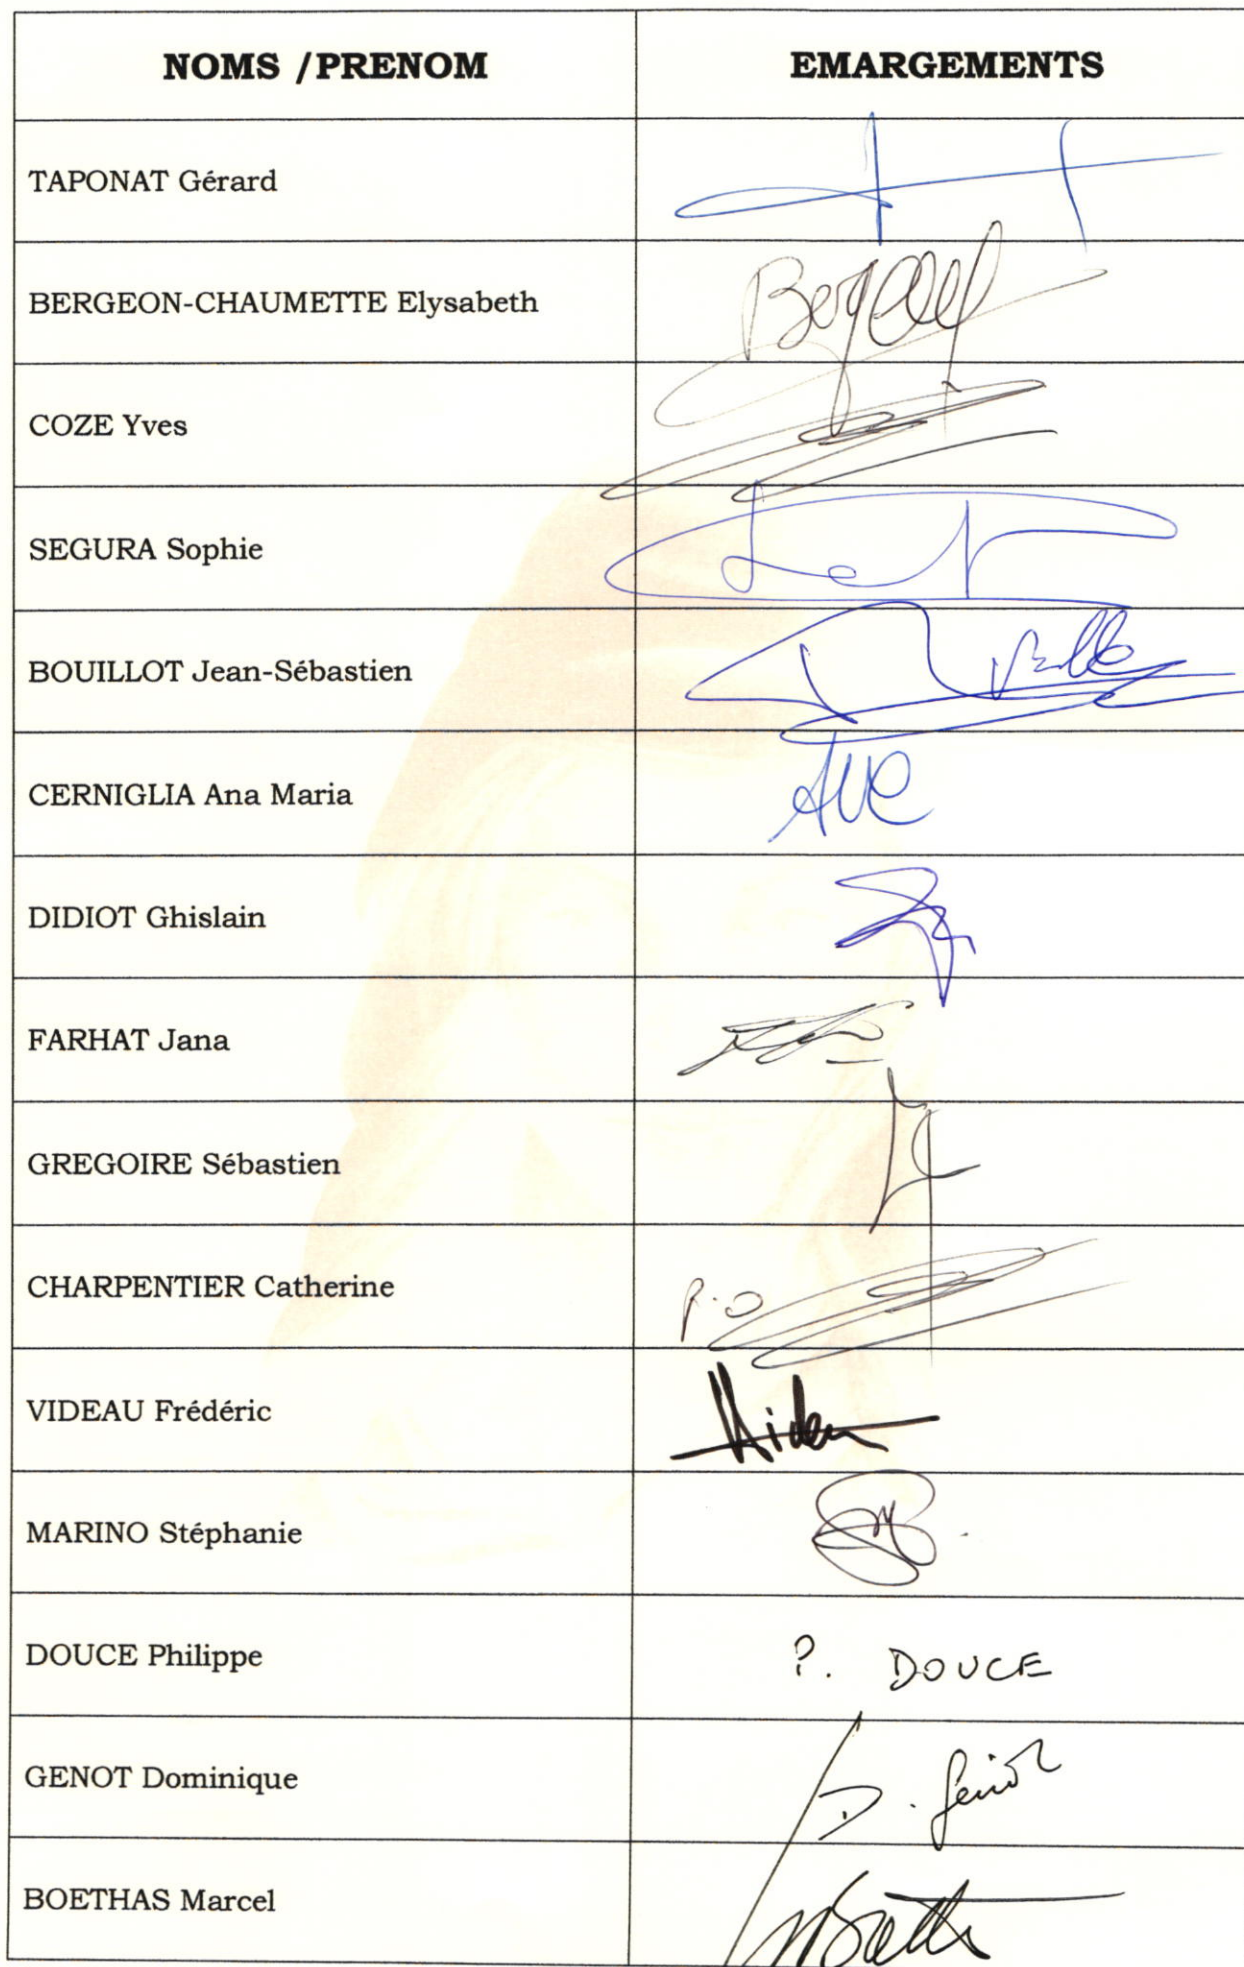 NOMS /PRENOM EMARGEMENTS
TAPONAT Gérard
BERGEON-CHAUMETTE Elysabeth
COZE Yves
SEGURA Sophie
BOUILLOT Jean-Sébastien
CERNIGLIA Ana Maria
DIDIOT Ghislain
FARHAT Jana
GREGOIRE Sébastien
CHARPENTIER Catherine P.O
VIDEAU Frédéric
MARINO Stéphanie
DOUCE Philippe P. DOUCE
GENOT Dominique D. Genot
BOETHAS Marcel